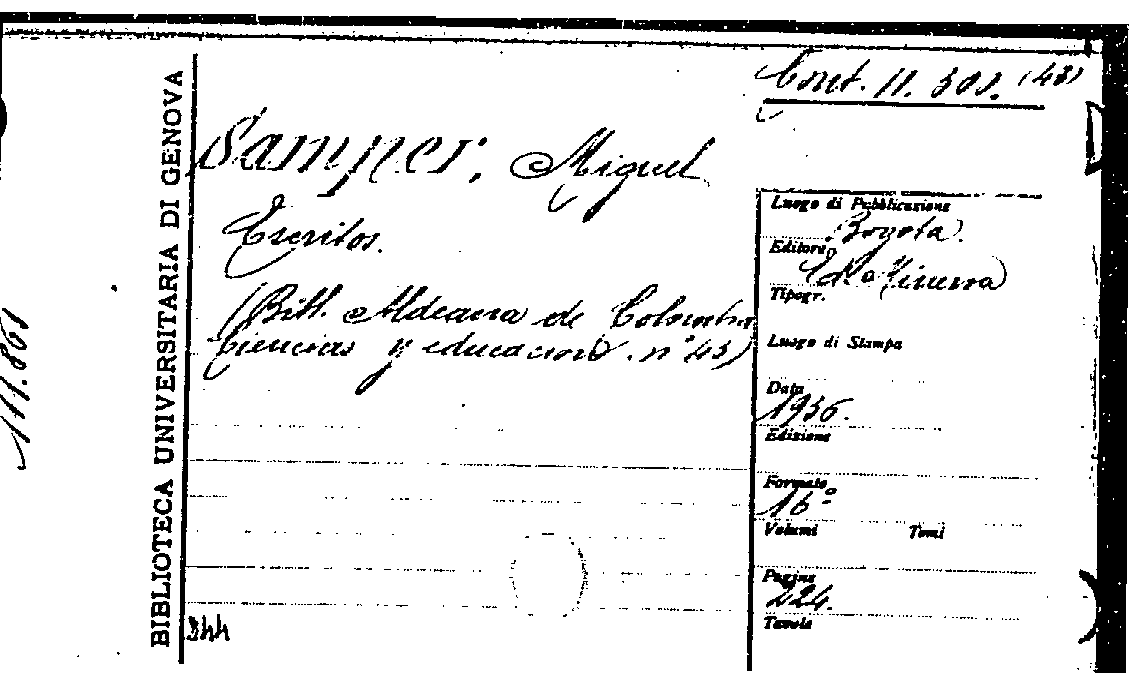 Cont. 11. 303. (43)
BIBLIOTECA UNIVERSITARIA DI GENOVA
Samper, Miguel
Escritos.
(Bibl. Aldeana de Colombia
Ciencias y educacion. n° 43)
Luogo di Pubblicazione
Bogota.
Editore
Ed. Minerva
Tipogr.
Luogo di Stampa
Data
1936.
Edizione
Formato
16°
Volumi Tomi
Pagine
224.
Tavole
111.861